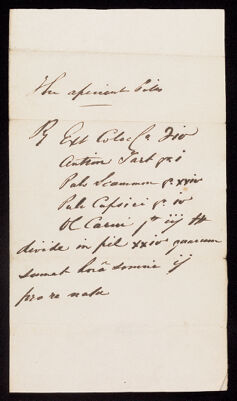 The aperient Pills
℞ Ext Coloc Co ʒiv
Antim Tart gr i
Pulv Scammon gr xxiv
Pulv Capsici gr iv
Ol Carui gtt iij ft
divide in pil xxiv quarum
sumat horâ somni ij
pro re nata